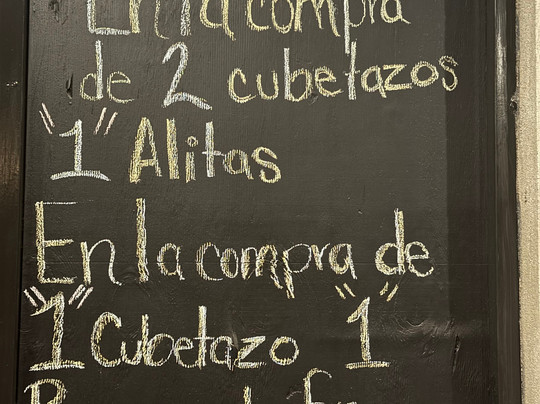 En la compra
de 2 cubetazos
"1" Alitas
En la compra de
"1" Cubetazo "1"